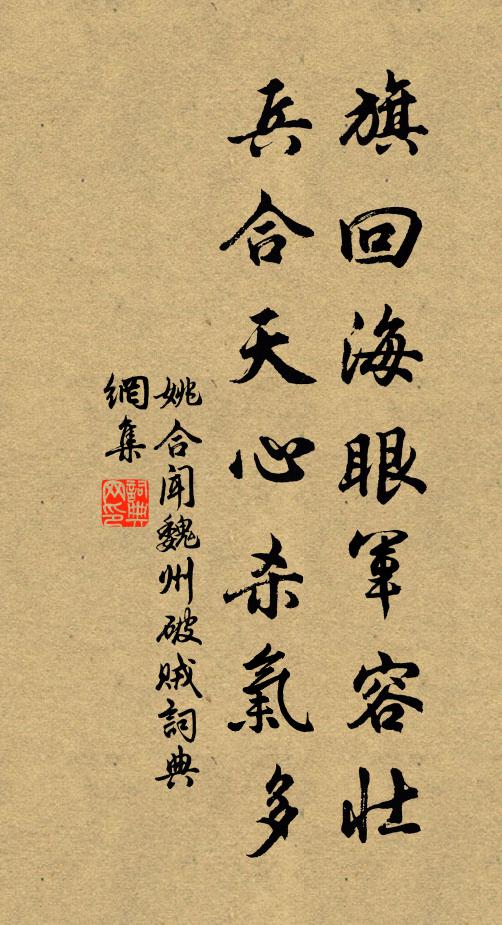 旗回海眼軍容壯
兵合天心杀氣多
姚合闻魏州破贼詞典
網集
詞典
网印